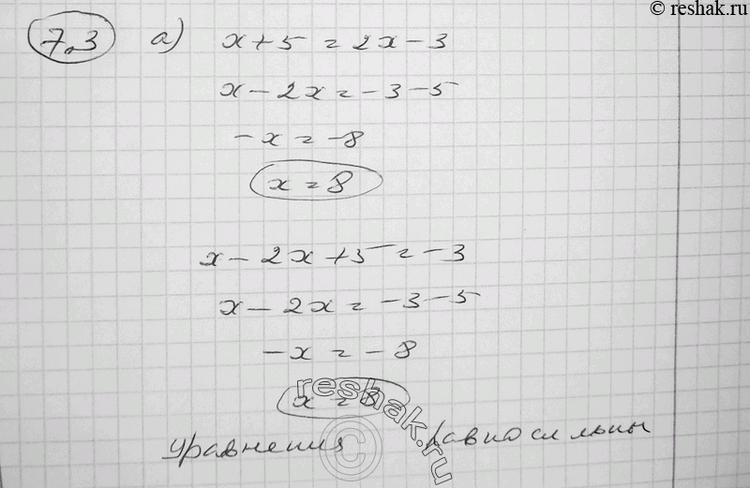 © reshak.ru
7.3 а) x + 5 = 2x - 3
x - 2x = -3 - 5
-x = -8
x = 8
x - 2x + 5 = -3
x - 2x = -3 - 5
-x = -8
x = 8
уравнения равносильны
© reshak.ru